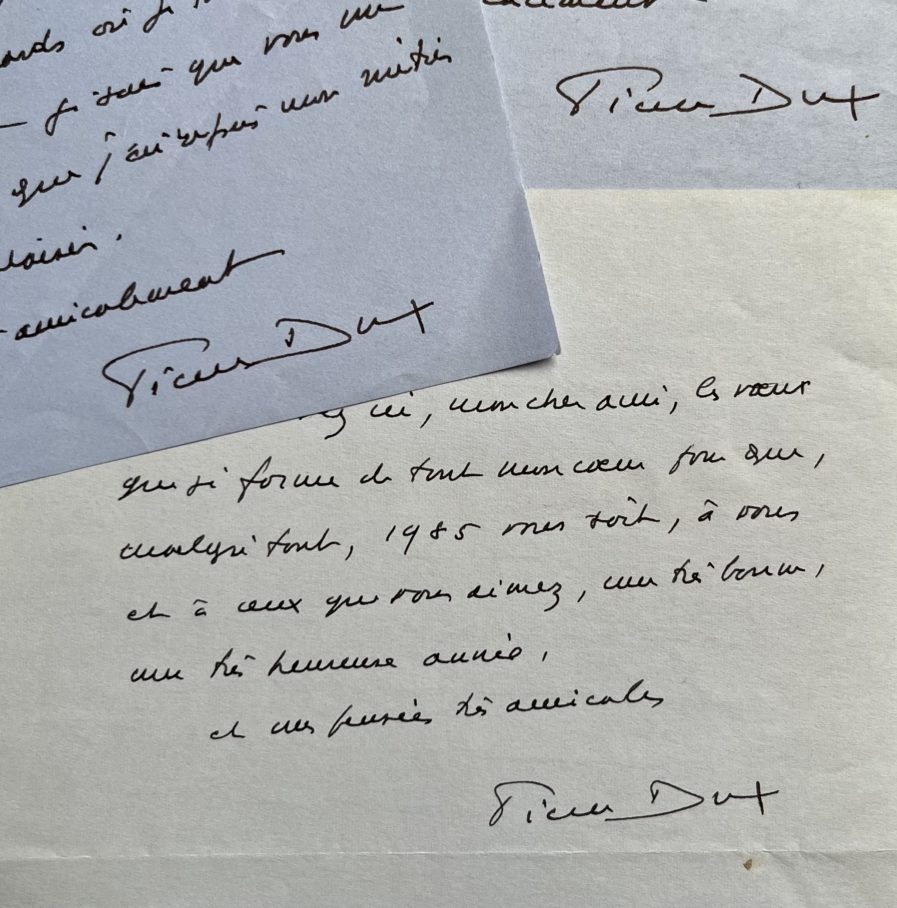 où je
que vous me
que j'ai repris mon métier
plaisir.
amicalement
Pierre Dux
Pierre Dux
ici, mon cher ami, les vœux
que je forme de tout mon cœur pour que,
malgré tout, 1985 vous soit, à vous
et à ceux que vous aimez, une très bonne,
une très heureuse année,
et mes pensées très amicales
Pierre Dux